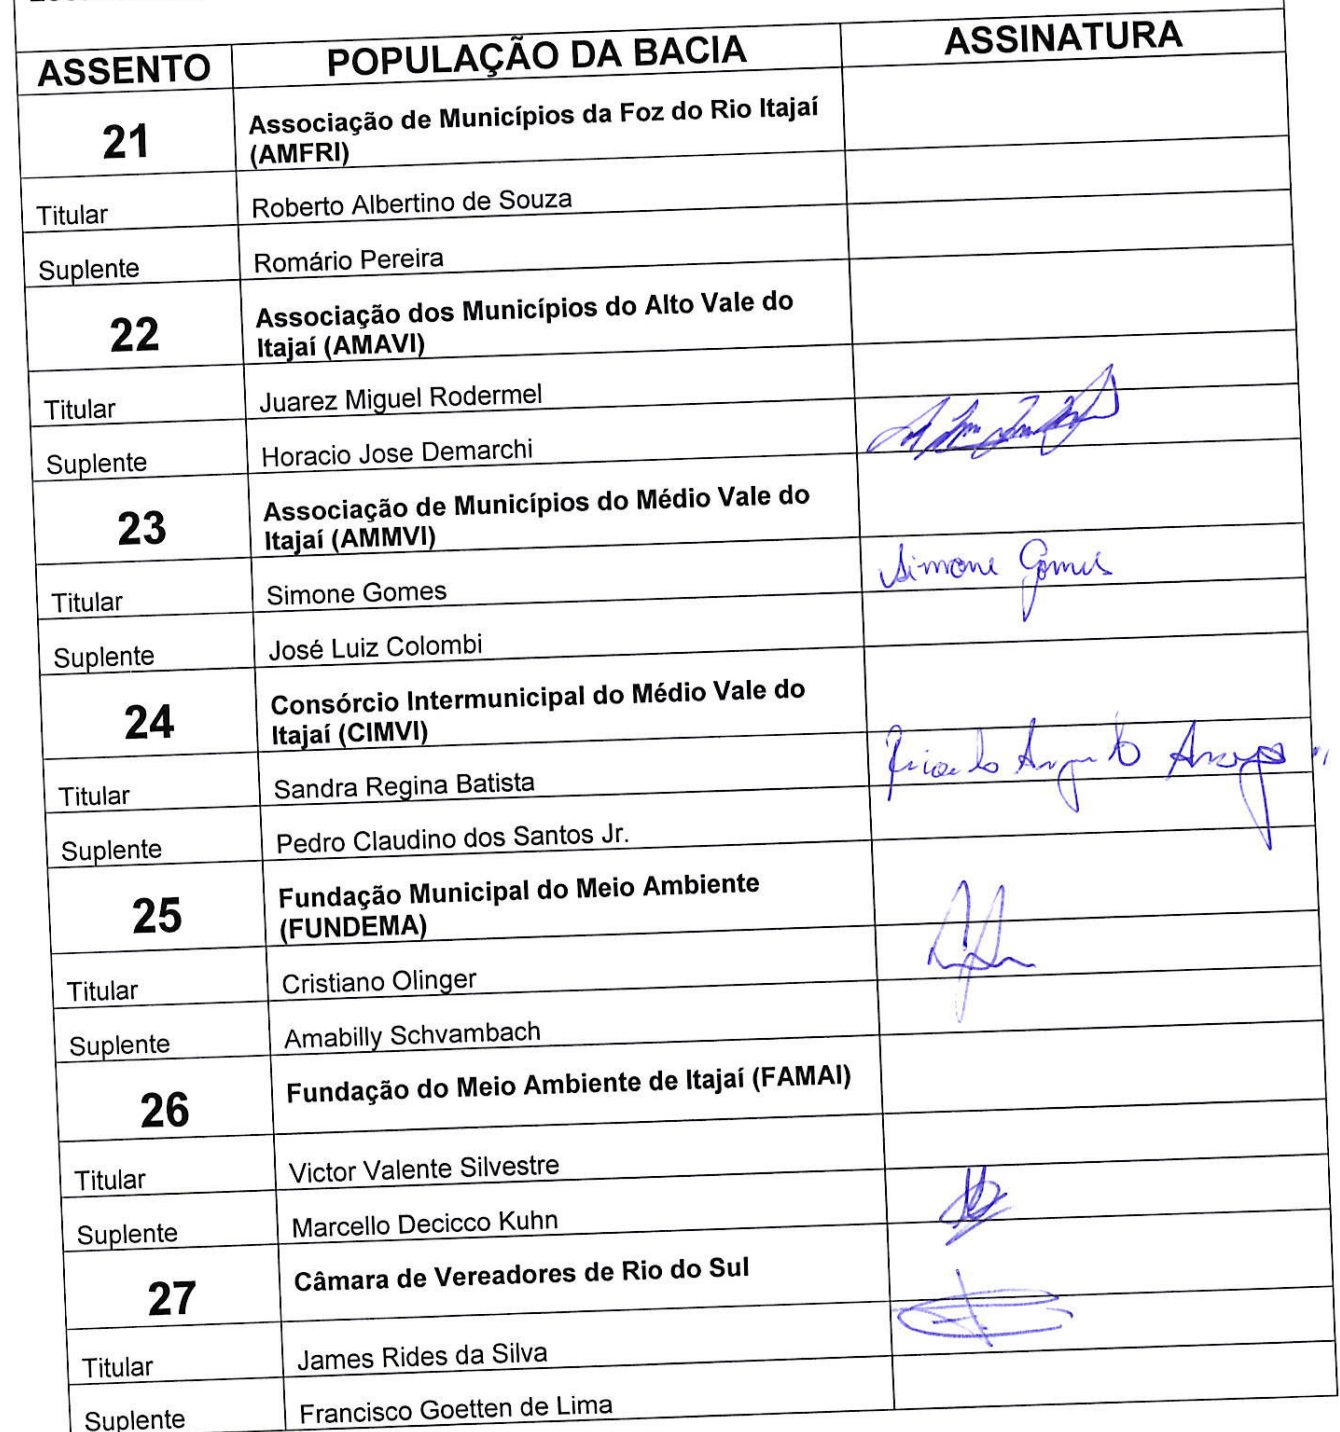 ASSENTO POPULAÇÃO DA BACIA ASSINATURA
21 Associação de Municípios da Foz do Rio Itajaí
(AMFRI)
Titular Roberto Albertino de Souza
Suplente Romário Pereira
22 Associação dos Municípios do Alto Vale do
Itajaí (AMAVI)
Titular Juarez Miguel Rodermel
Suplente Horacio Jose Demarchi
23 Associação de Municípios do Médio Vale do
Itajaí (AMMVI)
Titular Simone Gomes Simone Gomes
Suplente José Luiz Colombi
24 Consórcio Intermunicipal do Médio Vale do
Itajaí (CIMVI)
Titular Sandra Regina Batista
Suplente Pedro Claudino dos Santos Jr.
25 Fundação Municipal do Meio Ambiente
(FUNDEMA)
Titular Cristiano Olinger
Suplente Amabilly Schvambach
26 Fundação do Meio Ambiente de Itajaí (FAMAI)
Titular Victor Valente Silvestre
Suplente Marcello Decicco Kuhn
27 Câmara de Vereadores de Rio do Sul
Titular James Rides da Silva
Suplente Francisco Goetten de Lima